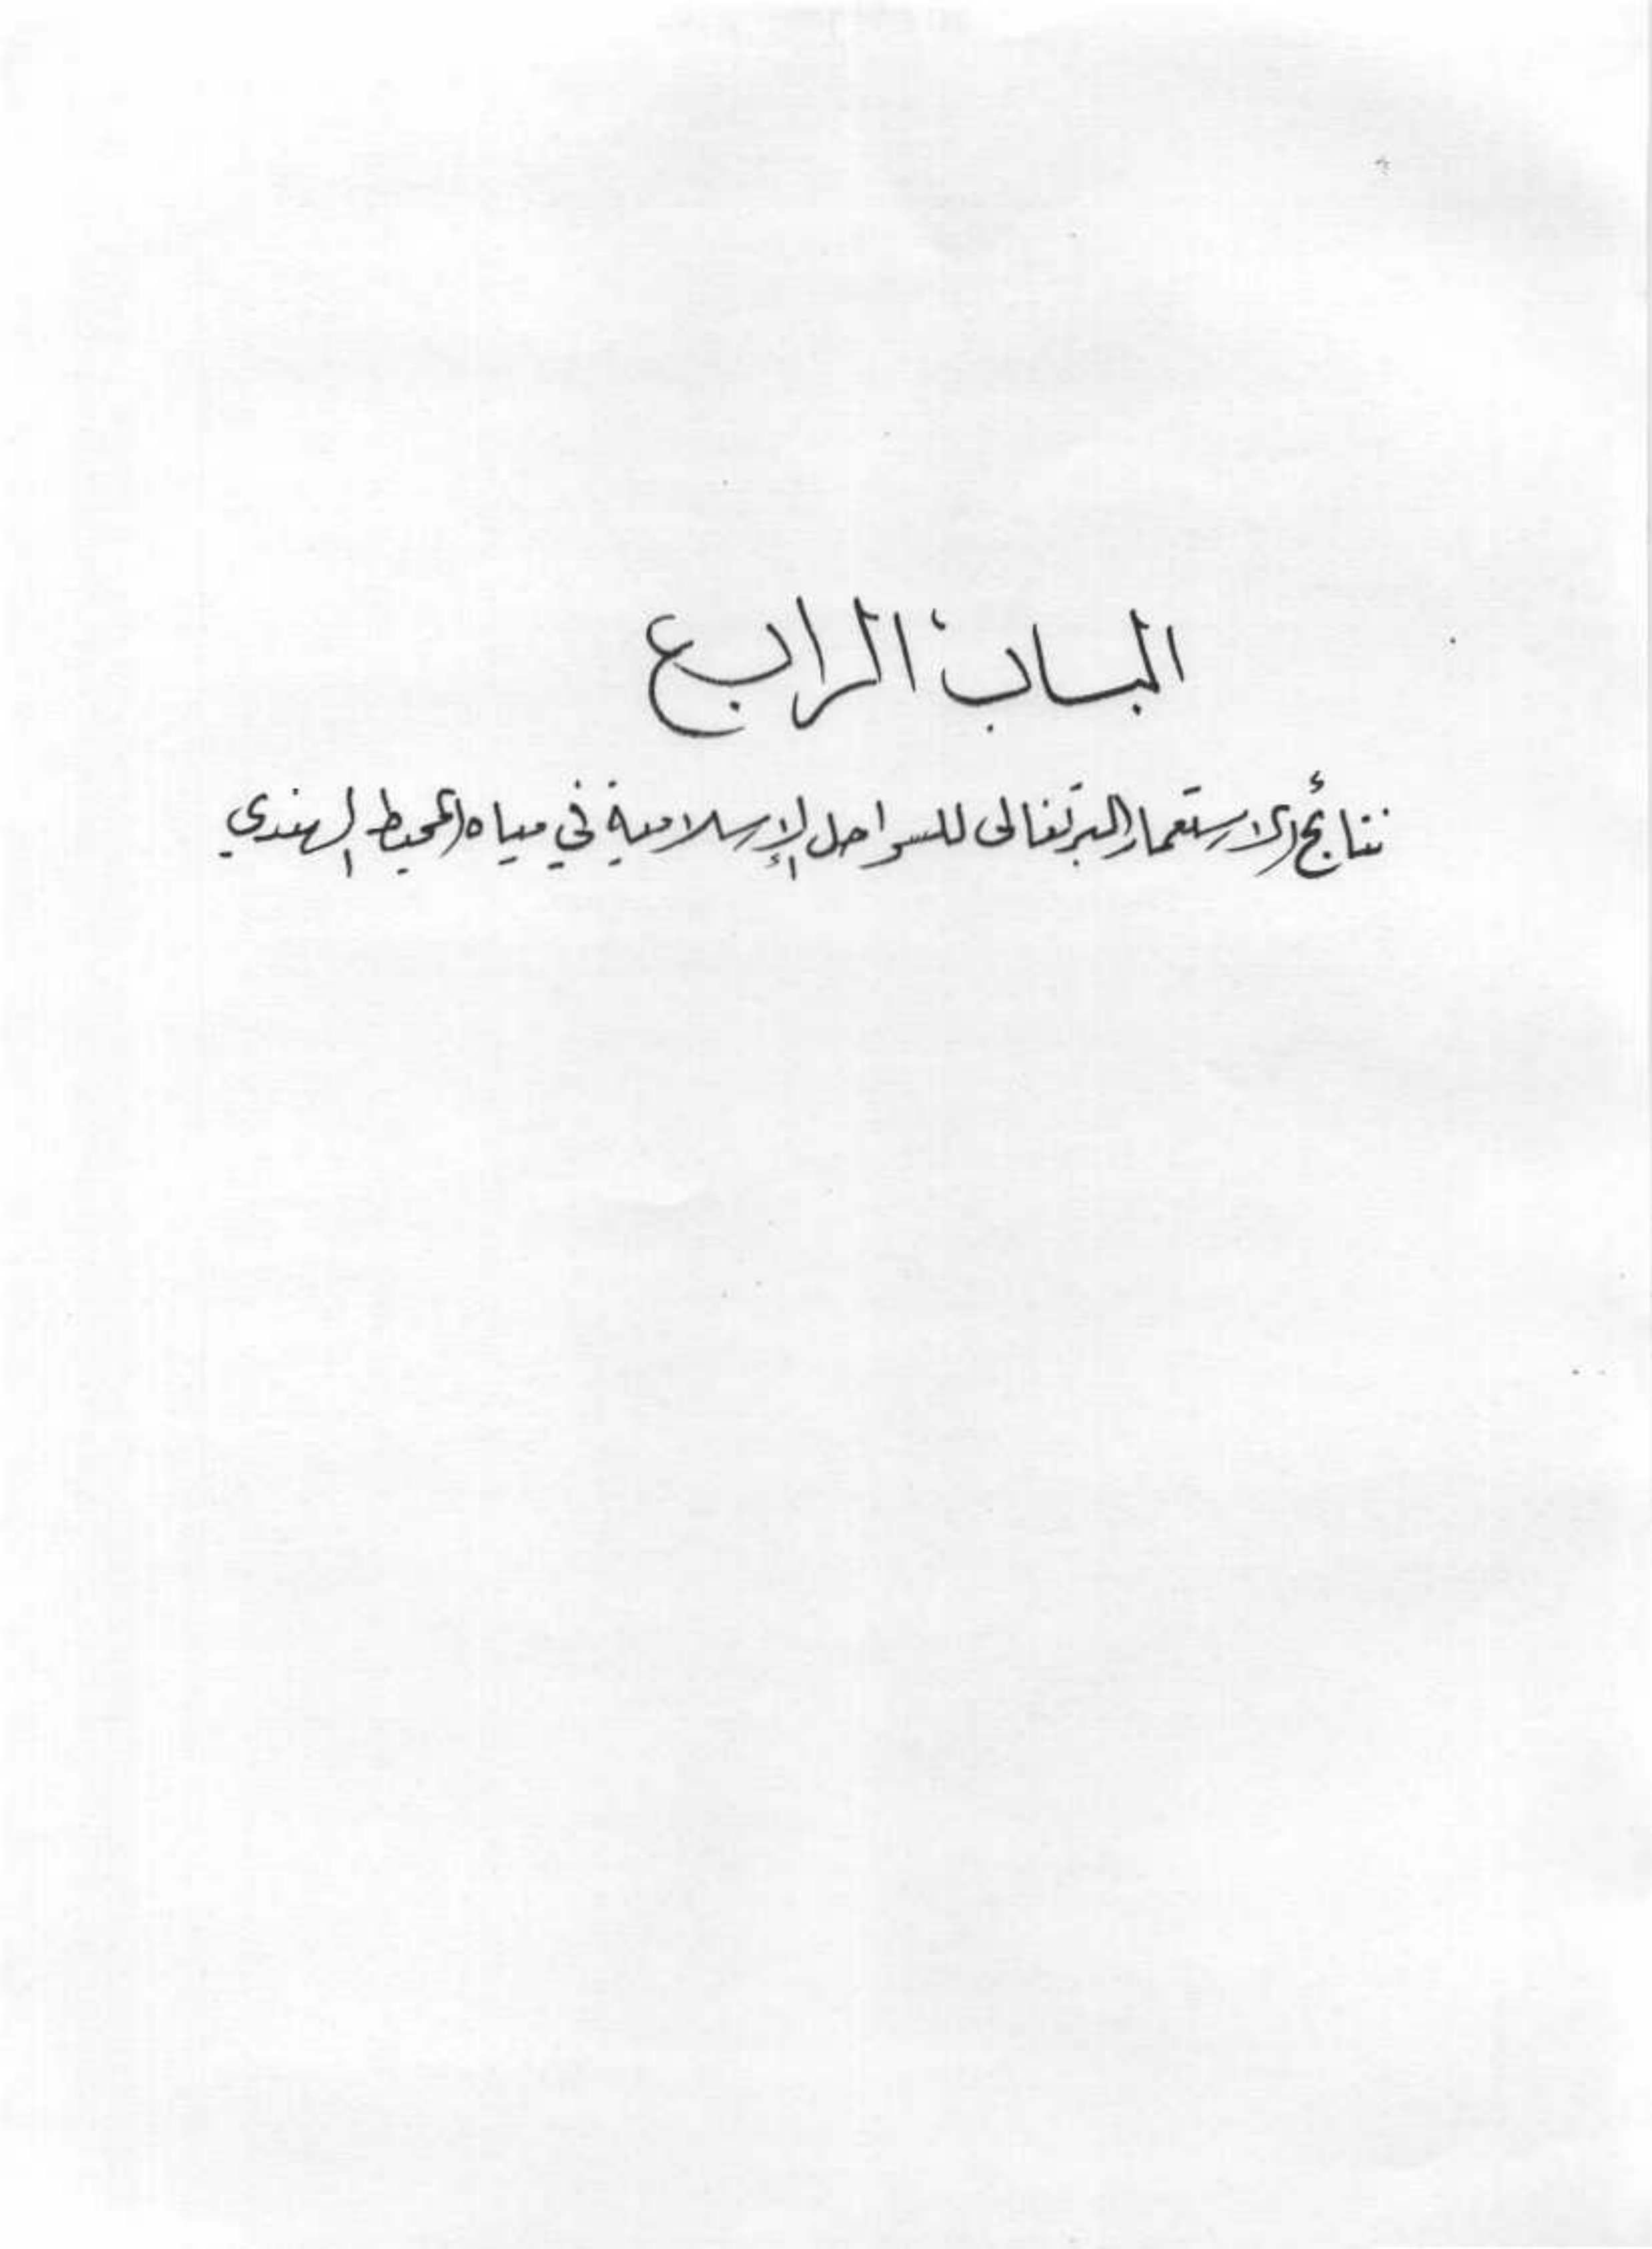 الباب الرابع
نتائج الاستعمار البرتغالى للسواحل الإسلامية في مياه المحيط الهندي